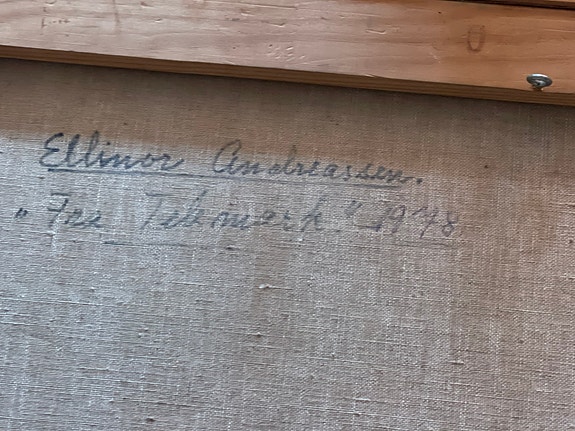 Ellinor Andreassen.
„Fra Telemark." 1948